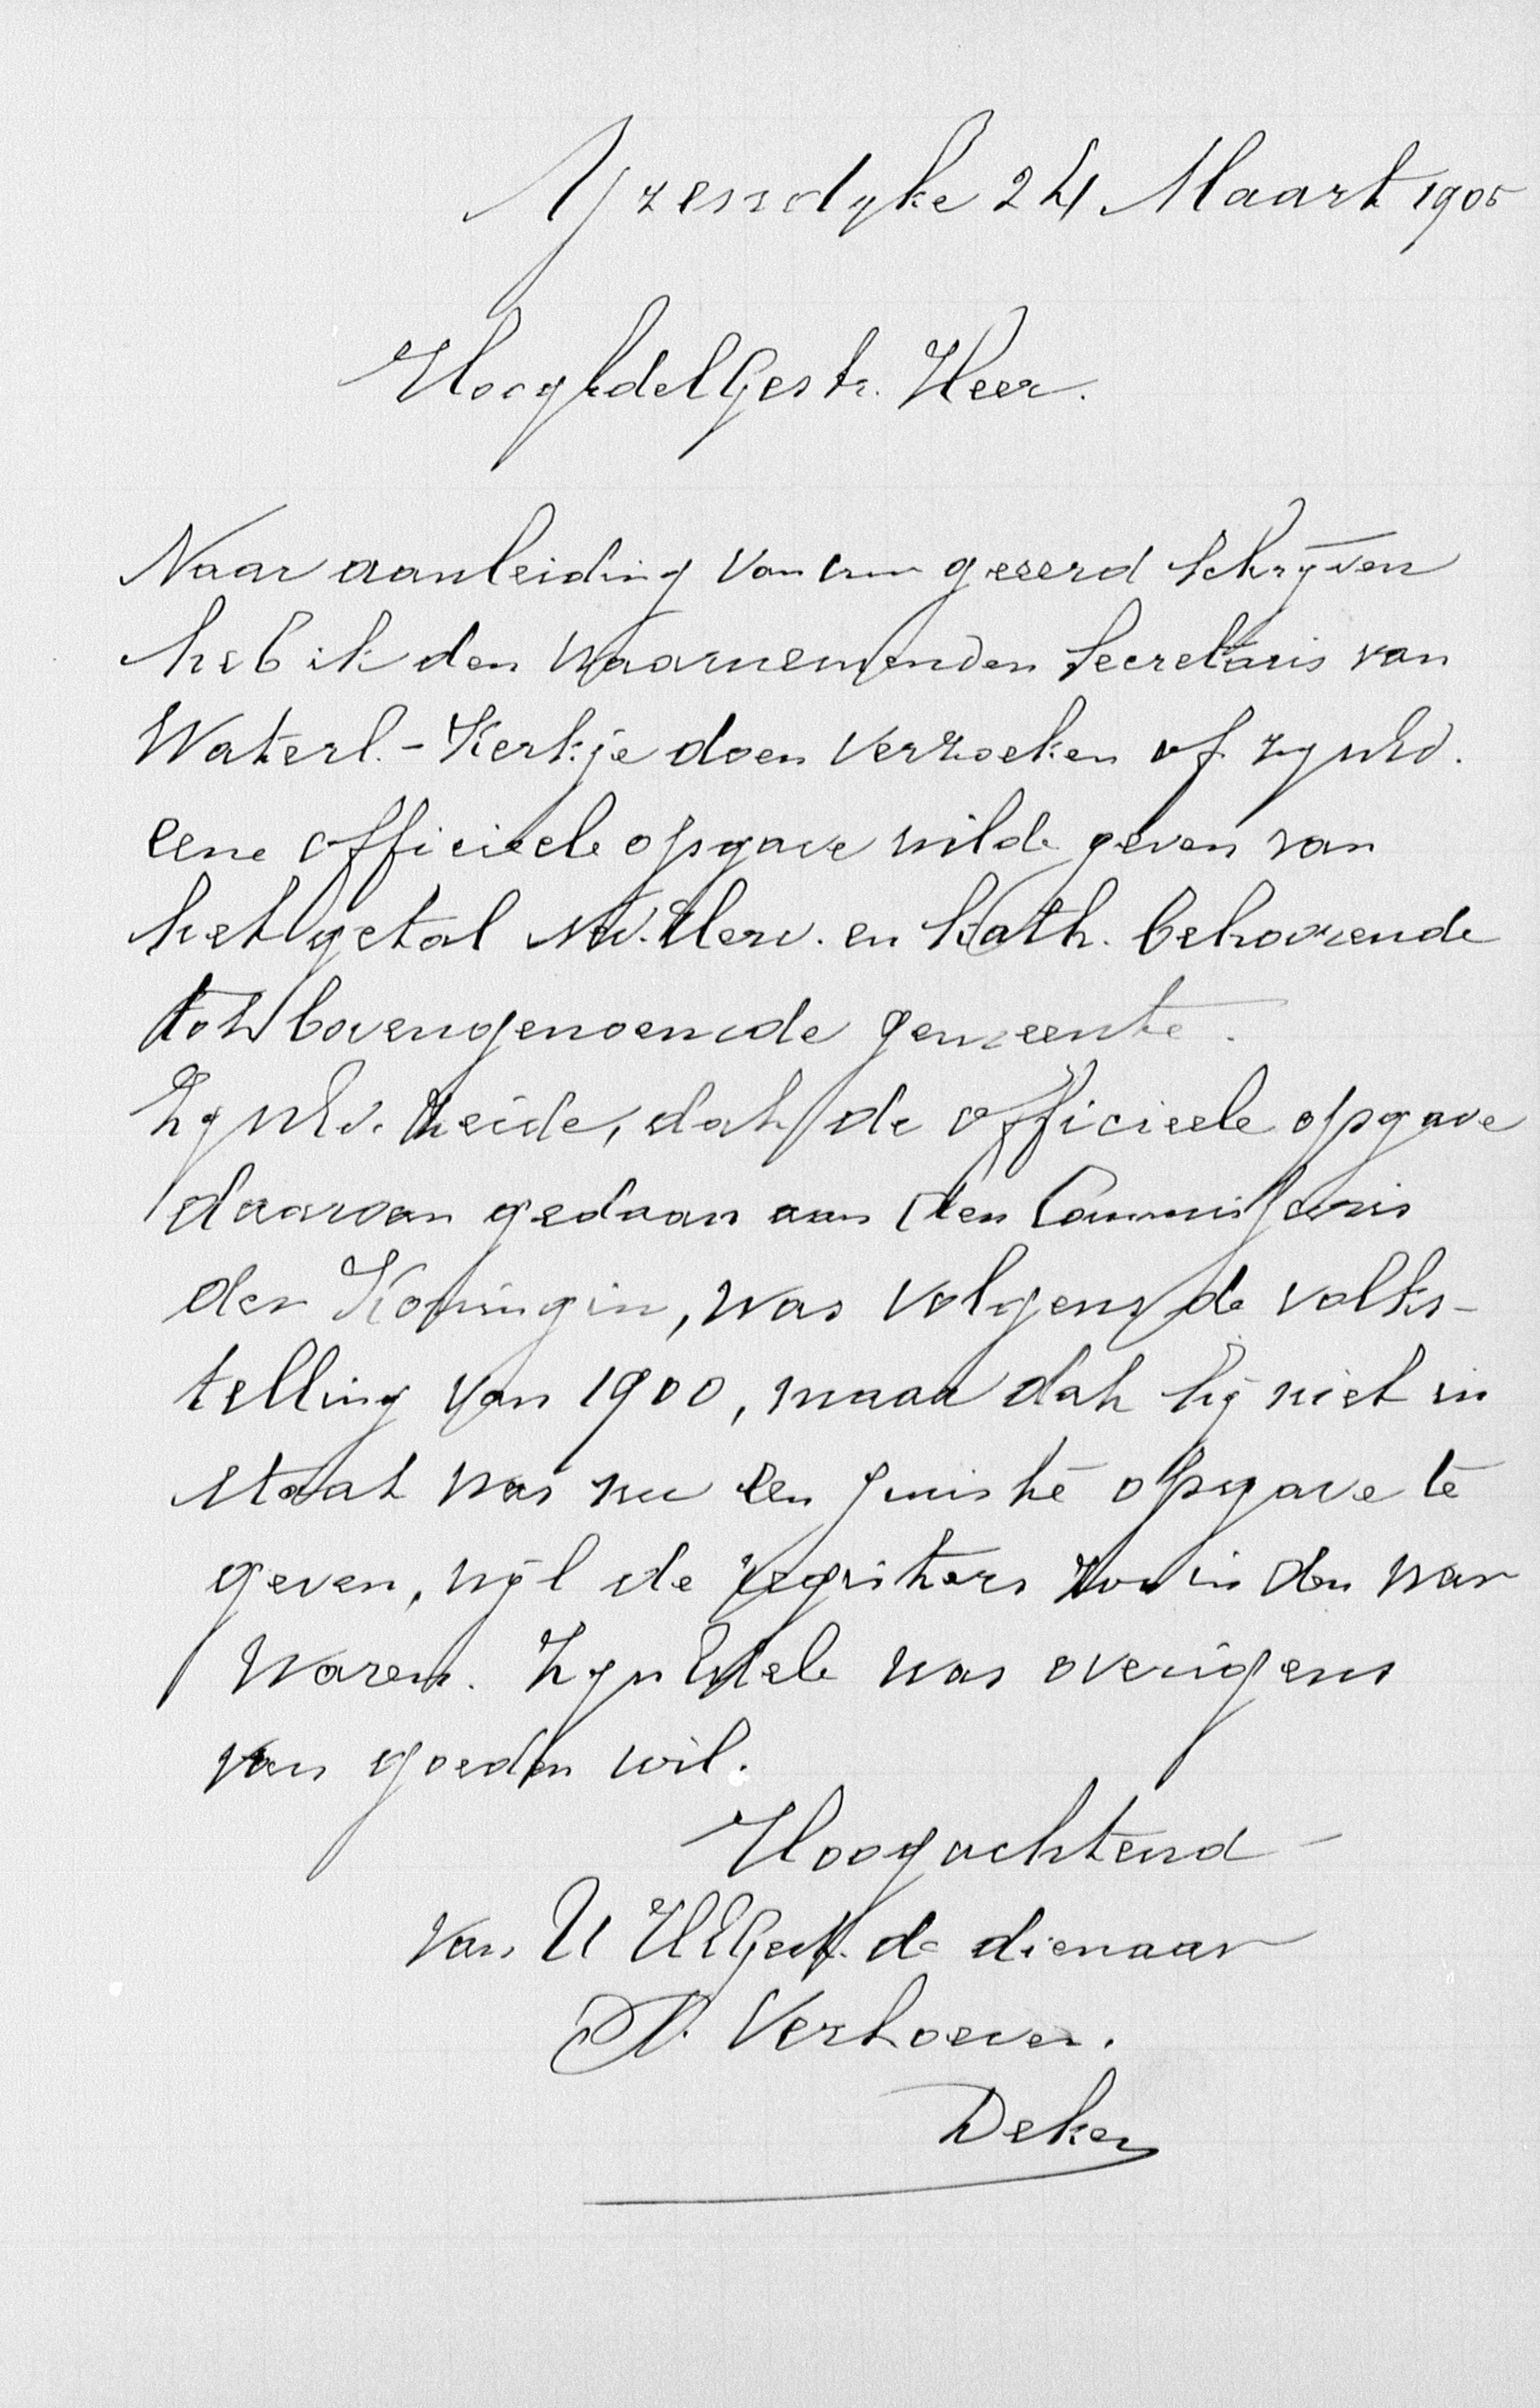 Yzendyke 24 Maart 1905
HoogEdelGestr. Heer.
Naar aanleiding van uw geeerd schrijven
heb ik den waarnemenden Secretaris van
Waterl.-Kerkje doen verzoeken of zynEd.
eene officieele opgave wilde geven van
het getal Ned. Herv. en Kath. behoorende
tot bovengenoemde gemeente.
ZynEd. zeide, dat de officieele opgave
daarvan gedaan aan den Commissaris
der Koningin, was volgens de volks-
telling van 1900, maar dat hij niet in
staat was nu een juiste opgave te
geven, wijl de registers zoo in den war
waren. ZynEdele was overigens
van goeden wil.
Hoogachtend
van U HEGest. de dienaar
P. Verhoeven.
Deken